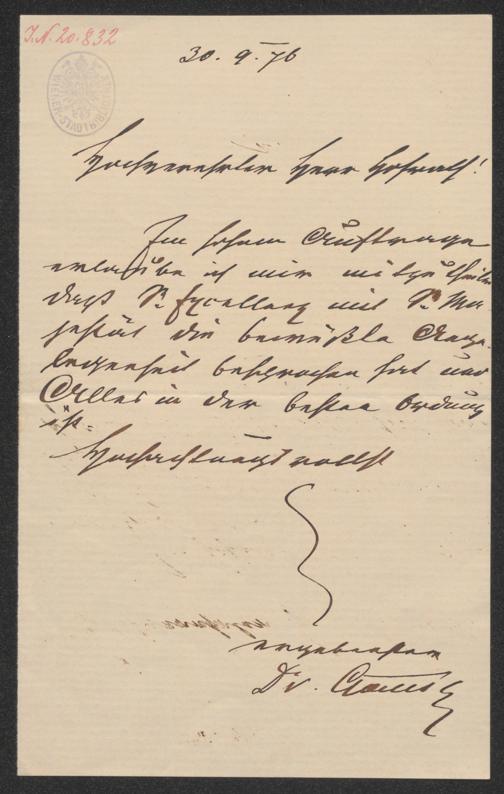 J.N. 20.832
30. 9. 76
Hochverehrter Herr Hofrath!
Im hohem Auftrage
erlaube ich mir mitzutheilen
daß Sr. Excellenz mit Sr. Ma-
jestät die bewußte Ange-
legenheit besprochen hat und
Alles in der besten Ordnung
ist.
Hochachtungsvollst
ergebenster
Dr.